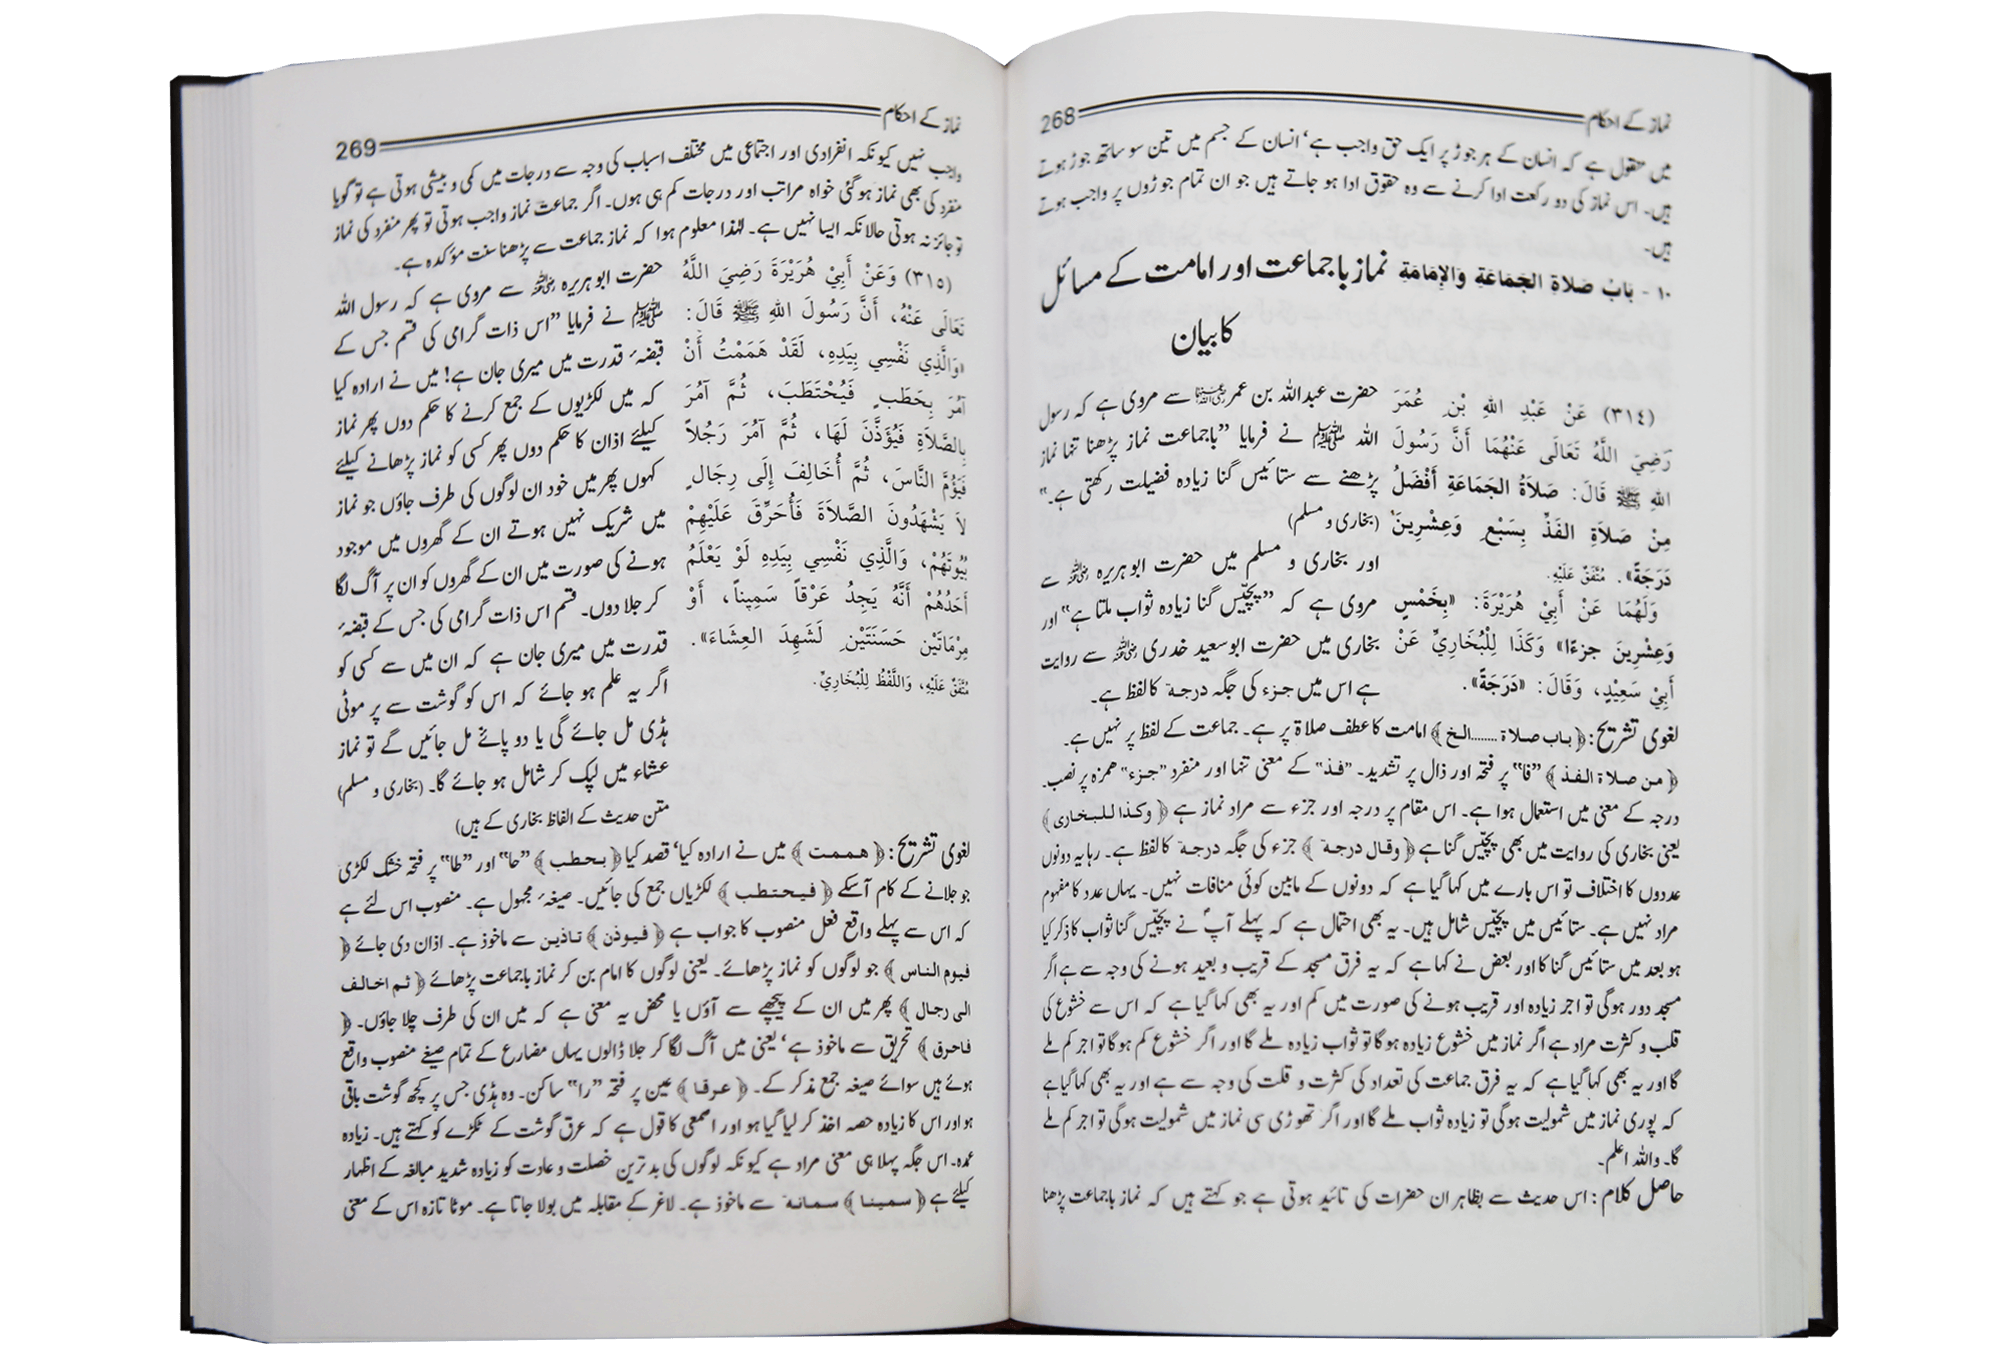 نماز کے احکام 268
میں منقول ہے کہ انسان کے ہر جوڑ پر ایک حق واجب ہے‘ انسان کے جسم میں تین سو ساٹھ جوڑ ہوتے
ہیں۔ اس نماز کی دو رکعت ادا کرنے سے وہ حقوق ادا ہو جاتے ہیں جو ان تمام جوڑوں پر واجب ہوتے
ہیں۔
١٠ - بَابُ صَلَاةِ الجَمَاعَةِ وَالإِمَامَةِ نماز باجماعت اور امامت کے مسائل
کا بیان
(٣١٤) عَنْ عَبْدِ اللهِ بْنِ عُمَرَ
رَضِيَ اللَّهُ تَعَالَى عَنْهُمَا أَنَّ رَسُولَ
اللهِ ﷺ قَالَ: صَلَاةُ الجَمَاعَةِ أَفْضَلُ
مِنْ صَلَاةِ الفَذِّ بِسَبْعٍ وَعِشْرِينَ
دَرَجَةً». مُتَّفَقٌ عَلَيْهِ.
وَلَهُمَا عَنْ أَبِيْ هُرَيْرَةَ: «بِخَمْسٍ
وَعِشْرِينَ جزءًا» وَكَذَا لِلْبُخَارِيِّ عَنْ
أَبِيْ سَعِيْدٍ، وَقَالَ: «دَرَجَةً».
حضرت عبداللہ بن عمر رضی اللہ عنہما سے مروی ہے کہ رسول
اللہ ﷺ نے فرمایا ”باجماعت نماز پڑھنا تنہا نماز
پڑھنے سے ستائیس گنا زیادہ فضیلت رکھتی ہے۔“
(بخاری و مسلم)
اور بخاری و مسلم میں حضرت ابو ہریرہ رضی اللہ عنہ سے
مروی ہے کہ ”پچیس گنا زیادہ ثواب ملتا ہے“ اور
بخاری میں حضرت ابو سعید خدری رضی اللہ عنہ سے روایت
ہے اس میں جزء کی جگہ درجۃ کا لفظ ہے۔
لغوی تشریح: ﴿ باب صلاة ...... الخ ﴾ امامت کا عطف صلاۃ پر ہے۔ جماعت کے لفظ پر نہیں ہے۔
﴿ من صلاة الفذ ﴾ ”فا“ پر فتحہ اور ذال پر تشدید۔ ”فذ“ کے معنی تنہا اور منفرد ”جزء“ ہمزہ پر نصب۔
درجہ کے معنی میں استعمال ہوا ہے۔ اس مقام پر درجہ اور جزء سے مراد نماز ہے ﴿ وكذا للبخاری ﴾
یعنی بخاری کی روایت میں بھی پچیس گنا ہے ﴿ وقال درجة ﴾ جزء کی جگہ درجۃ کا لفظ ہے۔ رہا یہ دونوں
عددوں کا اختلاف تو اس بارے میں کہا گیا ہے کہ دونوں کے مابین کوئی منافات نہیں۔ یہاں عدد کا مفہوم
مراد نہیں ہے۔ ستائیس میں پچیس شامل ہیں۔ یہ بھی احتمال ہے کہ پہلے آپؐ نے پچیس گنا ثواب کا ذکر کیا
ہو بعد میں ستائیس گنا کا اور بعض نے کہا ہے کہ یہ فرق مسجد کے قریب و بعید ہونے کی وجہ سے ہے اگر
مسجد دور ہوگی تو اجر زیادہ اور قریب ہونے کی صورت میں کم اور یہ بھی کہا گیا ہے کہ اس سے خشوع کی
قلت و کثرت مراد ہے اگر نماز میں خشوع زیادہ ہوگا تو ثواب زیادہ ملے گا اور اگر خشوع کم ہوگا تو اجر کم ملے
گا اور یہ بھی کہا گیا ہے کہ یہ فرق جماعت کی تعداد کی کثرت و قلت کی وجہ سے ہے اور یہ بھی کہا گیا ہے
کہ پوری نماز میں شمولیت ہوگی تو زیادہ ثواب ملے گا اور اگر تھوڑی سی نماز میں شمولیت ہوگی تو اجر کم ملے
گا۔ واللہ اعلم۔
حاصل کلام: اس حدیث سے بظاہر ان حضرات کی تائید ہوتی ہے جو کہتے ہیں کہ نماز باجماعت پڑھنا
نماز کے احکام 269
واجب نہیں کیونکہ انفرادی اور اجتماعی میں مختلف اسباب کی وجہ سے درجات میں کمی و بیشی ہوتی ہے تو گویا
منفرد کی بھی نماز ہو گئی خواہ مراتب اور درجات کم ہی ہوں۔ اگر جماعت نماز واجب ہوتی تو پھر منفرد کی نماز
تو جائز نہ ہوتی حالانکہ ایسا نہیں ہے۔ لہٰذا معلوم ہوا کہ نماز جماعت سے پڑھنا سنت مؤکدہ ہے۔
(٣١٥) وَعَنْ أَبِي هُرَيْرَةَ رَضِيَ اللَّهُ
تَعَالَى عَنْهُ، أَنَّ رَسُولَ اللهِ ﷺ قَالَ:
«وَالَّذِي نَفْسِي بِيَدِهِ، لَقَدْ هَمَمْتُ أَنْ
آمُرَ بِحَطَبٍ فَيُحْتَطَبَ، ثُمَّ آمُرَ
بِالصَّلَاةِ فَيُؤَذَّنَ لَهَا، ثُمَّ آمُرَ رَجُلاً
فَيَؤُمَّ النَّاسَ، ثُمَّ أُخَالِفَ إِلَى رِجَالٍ
لَا يَشْهَدُونَ الصَّلَاةَ فَأُحَرِّقَ عَلَيْهِمْ
بُيُوتَهُمْ، وَالَّذِي نَفْسِي بِيَدِهِ لَوْ يَعْلَمُ
أَحَدُهُمْ أَنَّهُ يَجِدُ عَرْقاً سَمِيناً، أَوْ
مِرْمَاتَيْنِ حَسَنَتَيْنِ لَشَهِدَ العِشَاءَ».
مُتَّفَقٌ عَلَيْهِ، وَاللَّفْظُ لِلْبُخَارِيِّ.
حضرت ابو ہریرہ رضی اللہ عنہ سے مروی ہے کہ رسول اللہ
ﷺ نے فرمایا ”اس ذات گرامی کی قسم جس کے
قبضۂ قدرت میں میری جان ہے! میں نے ارادہ کیا
کہ میں لکڑیوں کے جمع کرنے کا حکم دوں پھر نماز
کیلئے اذان کا حکم دوں پھر کسی کو نماز پڑھانے کیلئے
کہوں پھر میں خود ان لوگوں کی طرف جاؤں جو نماز
میں شریک نہیں ہوتے ان کے گھروں میں موجود
ہونے کی صورت میں ان کے گھروں کو ان پر آگ لگا
کر جلا دوں۔ قسم اس ذات گرامی کی جس کے قبضۂ
قدرت میں میری جان ہے کہ ان میں سے کسی کو
اگر یہ علم ہو جائے کہ اس کو گوشت سے پر موٹی
ہڈی مل جائے گی یا دو پائے مل جائیں گے تو نماز
عشاء میں لپک کر شامل ہو جائے گا۔ (بخاری و مسلم)
متن حدیث کے الفاظ بخاری کے ہیں)
لغوی تشریح: ﴿ هممت ﴾ میں نے ارادہ کیا‘ قصد کیا ﴿ بحطب ﴾ ”حا“ اور ”طا“ پر فتحہ خشک لکڑی
جو جلانے کے کام آسکے ﴿ فيحتطب ﴾ لکڑیاں جمع کی جائیں۔ صیغہ مجہول ہے۔ منصوب اس لئے ہے
کہ اس سے پہلے واقع فعل منصوب کا جواب ہے ﴿ فيوذن ﴾ تاذین سے ماخوذ ہے۔ اذان دی جائے ﴿
فيوم الناس ﴾ جو لوگوں کو نماز پڑھائے۔ یعنی لوگوں کا امام بن کر نماز باجماعت پڑھائے ﴿ ثم اخالف
الى رجال ﴾ پھر میں ان کے پیچھے سے آؤں یا محض یہ معنی ہے کہ میں ان کی طرف چلا جاؤں۔ ﴿
فاحرق ﴾ تحریق سے ماخوذ ہے‘ یعنی میں آگ لگا کر جلا ڈالوں یہاں مضارع کے تمام صیغے منصوب واقع
ہوئے ہیں سوائے صیغہ جمع مذکر کے۔ ﴿ عرقا ﴾ عین پر فتحہ ”را“ ساکن۔ وہ ہڈی جس پر کچھ گوشت باقی
ہو اور اس کا زیادہ حصہ اخذ کر لیا گیا ہو اور اصمعی کا قول ہے کہ عرق گوشت کے ٹکڑے کو کہتے ہیں۔ زیادہ
عمدہ۔ اس جگہ پہلا ہی معنی مراد ہے کیونکہ لوگوں کی بدترین خصلت و عادت کو زیادہ شدید مبالغہ کے اظہار
کیلئے ہے ﴿ سمينا ﴾ سمانة سے ماخوذ ہے۔ لاغر کے مقابلہ میں بولا جاتا ہے۔ موٹا تازہ اس کے معنی